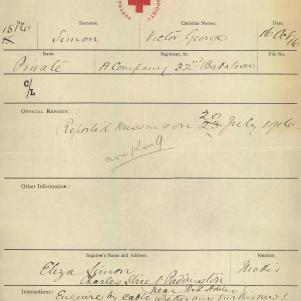 SOCIETY
1516
Surname.
Christian Names.
Simon
Victor George
16 Oct 16
Rank.
Regiment, &c.
File No.
Private
A Company 32nd Battalion
C/L
OFFICIAL REPORTS:
20
Reported missing on 23 July 1916
Other Information:
Inquirer's Name and Address.
Relation
Eliza Simon
Mother
Charles Street Paddington
near Port Adelaide
Instructions:
Enquire by cable whether any further news